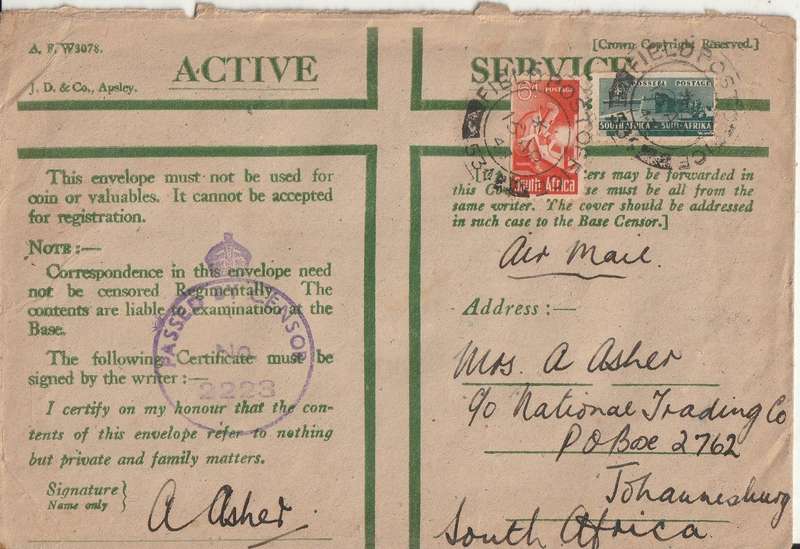 A. F. W3078.
J. D. & Co., Apsley.
ACTIVE
SERVICE
[Crown Copyright Reserved.]
FIELD POST OFFICE
FIELD POST OFFICE
6d POSTAGE
South Africa
POSSEEL POSTAGE
SOUTH AFRICA SUID-AFRIKA
This envelope must not be used for
coin or valuables. It cannot be accepted
for registration.
NOTE:—
Correspondence in this envelope need
not be censored Regimentally. The
contents are liable to examination at the
Base.
The following Certificate must be
signed by the writer:—
I certify on my honour that the con-
tents of this envelope refer to nothing
but private and family matters.
Signature
Name only
A Asher.
PASSED BY CENSOR
No
2223
may be forwarded in
this must be all from the
same writer. The cover should be addressed
in such case to the Base Censor.]
Air Mail.
Address:—
Mrs. A Asher
c/o National Trading Co
P O Box 2762
Johannesburg
South Africa.